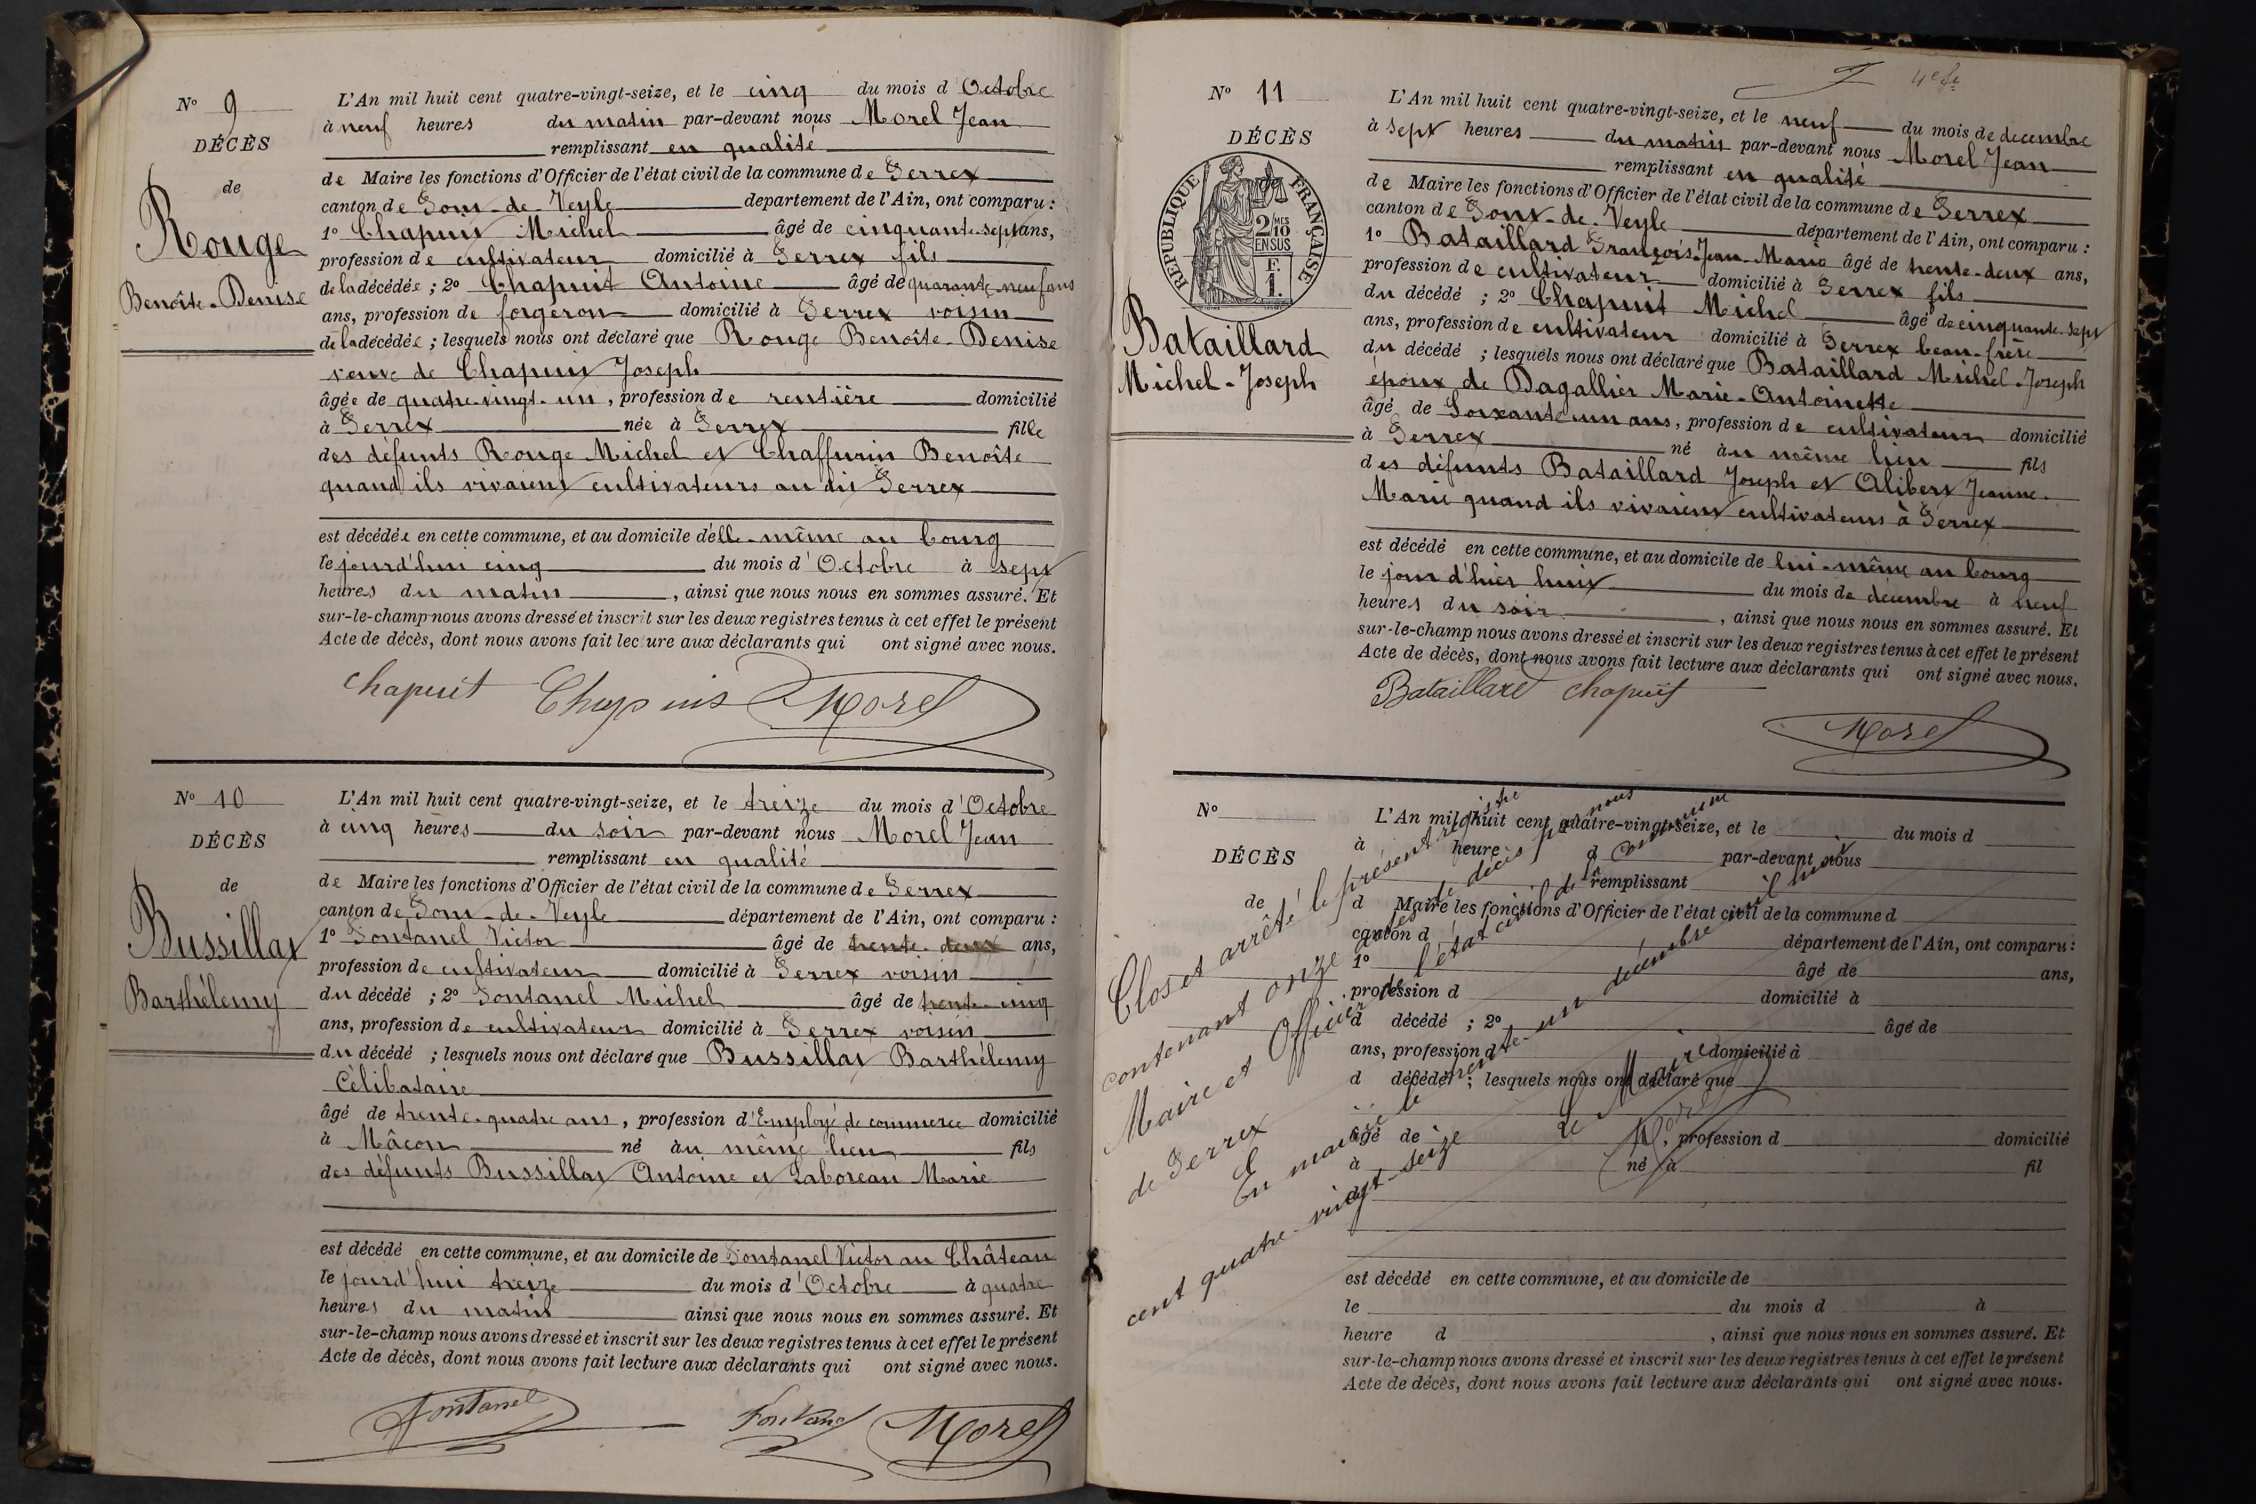 N° 9
DÉCÈS
de
Rouge
Benoîte-Denise
L'An mil huit cent quatre-vingt-seize, et le cinq du mois d'Octobre
à neuf heures du matin par-devant nous Morel Jean
remplissant en qualité
de Maire les fonctions d'Officier de l'état civil de la commune de Perrex
canton de Pont-de-Veyle département de l'Ain, ont comparu :
1° Chapuis Michel âgé de cinquante-sept ans,
profession de cultivateur domicilié à Perrex fils
de la décédée ; 2° Chapuit Antoine âgé de quarante-neuf ans
ans, profession de forgeron domicilié à Perrex voisin
de la décédée ; lesquels nous ont déclaré que Rouge Benoîte-Denise
veuve de Chapuis Joseph
âgée de quatre-vingt-un, profession de rentière domicilié
à Perrex née à Perrex fille
des défunts Rouge Michel et Chaffurin Benoîte
quand ils vivaient cultivateurs au dit Perrex
est décédée en cette commune, et au domicile d'elle-même au bourg
le jourd'hui cinq du mois d'Octobre à sept
heures du matin, ainsi que nous nous en sommes assuré. Et
sur-le-champ nous avons dressé et inscrit sur les deux registres tenus à cet effet le présent
Acte de décès, dont nous avons fait lecture aux déclarants qui ont signé avec nous.
Chapuit Chapuis Morel
N° 10
DÉCÈS
de
Bussillat
Barthélemy
L'An mil huit cent quatre-vingt-seize, et le treize du mois d'Octobre
à cinq heures du soir par-devant nous Morel Jean
remplissant en qualité
de Maire les fonctions d'Officier de l'état civil de la commune de Perrex
canton de Pont-de-Veyle département de l'Ain, ont comparu :
1° Fontanel Victor âgé de trente-deux ans,
profession de cultivateur domicilié à Perrex voisin
du décédé ; 2° Fontanel Michel âgé de trente-cinq
ans, profession de cultivateur domicilié à Perrex voisin
du décédé ; lesquels nous ont déclaré que Bussillat Barthélemy
Célibataire
âgé de trente-quatre ans, profession d'Employé de commerce domicilié
à Mâcon né au même lieu fils
des défunts Bussillat Antoine et Laboreau Marie
est décédé en cette commune, et au domicile de Fontanel Victor au Château
le jourd'hui treize du mois d'Octobre à quatre
heures du matin ainsi que nous nous en sommes assuré. Et
sur-le-champ nous avons dressé et inscrit sur les deux registres tenus à cet effet le présent
Acte de décès, dont nous avons fait lecture aux déclarants qui ont signé avec nous.
Fontanel Fontanel Morel
N° 11
DÉCÈS
de
RÉPUBLIQUE FRANÇAISE
2/10 MES
EN SUS
1 F.
Bataillard
Michel-Joseph
L'An mil huit cent quatre-vingt-seize, et le neuf du mois de decembre
à sept heures du matin par-devant nous Morel Jean
remplissant en qualité
de Maire les fonctions d'Officier de l'état civil de la commune de Perrex
canton de Pont-de-Veyle département de l'Ain, ont comparu :
1° Bataillard François-Jean-Marie âgé de trente-deux ans,
profession de cultivateur domicilié à Perrex fils
du décédé ; 2° Chapuit Michel âgé de cinquante-sept
ans, profession de cultivateur domicilié à Perrex beau-frère
du décédé ; lesquels nous ont déclaré que Bataillard Michel-Joseph
époux de Dagallier Marie-Antoinette
âgé de Soixante un ans, profession de cultivateur domicilié
à Perrex né au même lieu fils
des défunts Bataillard Joseph et Alibert Jeanne-
Marie quand ils vivaient cultivateurs à Perrex
est décédé en cette commune, et au domicile de lui-même au bourg
le jour d'hier huit du mois de décembre à neuf
heures du soir, ainsi que nous nous en sommes assuré. Et
sur-le-champ nous avons dressé et inscrit sur les deux registres tenus à cet effet le présent
Acte de décès, dont nous avons fait lecture aux déclarants qui ont signé avec nous.
Bataillard Chapuit
Morel
N°
DÉCÈS
de
L'An mil huit cent quatre-vingt-seize, et le du mois d
à heure d par-devant nous
remplissant
d Maire les fonctions d'Officier de l'état civil de la commune d
canton d département de l'Ain, ont comparu :
1° âgé de ans,
profession d domicilié à
d décédé ; 2° âgé de
ans, profession d domicilié à
d décédé ; lesquels nous ont déclaré que
âgé de , profession d domicilié
à né à fil
d
est décédé en cette commune, et au domicile de
le du mois d à
heure d , ainsi que nous nous en sommes assuré. Et
sur-le-champ nous avons dressé et inscrit sur les deux registres tenus à cet effet le présent
Acte de décès, dont nous avons fait lecture aux déclarants qui ont signé avec nous.
Clos et arrêté le présent registre
contenant onze actes de décès par nous
Maire et Officier de l'état civil de la commune
de Perrex
En mairie le trente-un décembre mil huit
cent quatre-vingt-seize
Le Maire
Morel